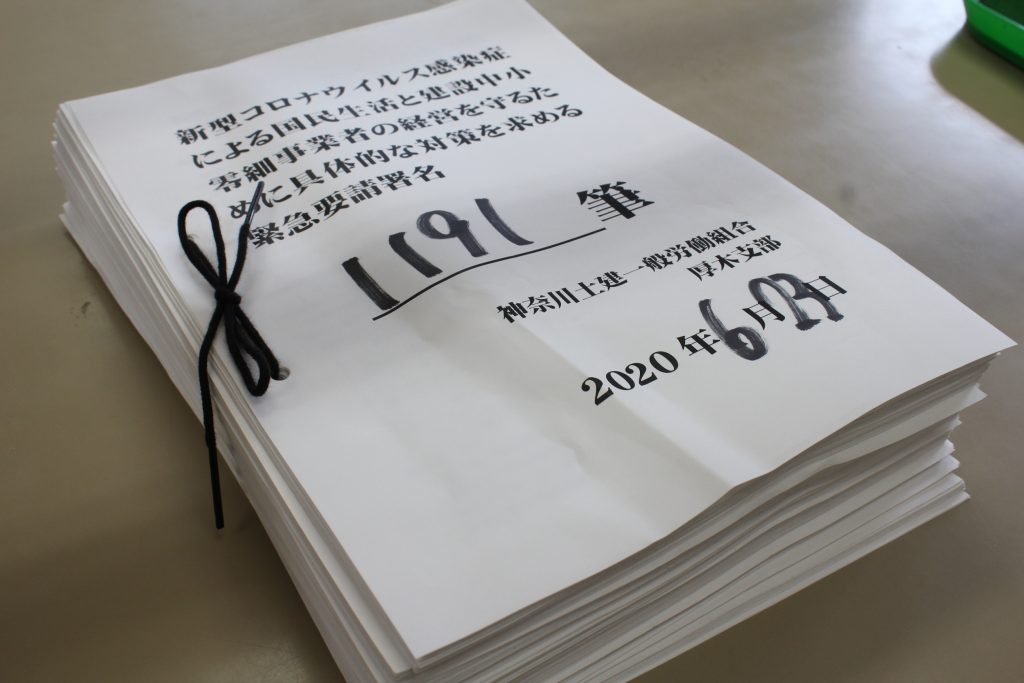 新型コロナウイルス感染症
による国民生活と建設中小
零細事業者の経営を守るた
めに具体的な対策を求める
緊急要請署名
1191 筆
神奈川土建一般労働組合
厚木支部
2020年6月23日